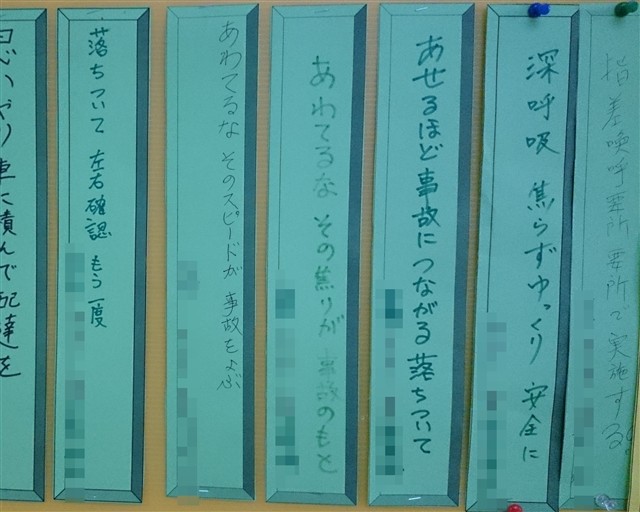 指差喚呼 要所要所で実施する
深呼吸 焦らずゆっくり 安全に
あせるほど事故につながる落ちついて
あわてるな その焦りが 事故のもと
あわてるな そのスピードが 事故をよぶ
落ちついて 左右確認 もう一度
思いやり 車に積んで 配達を